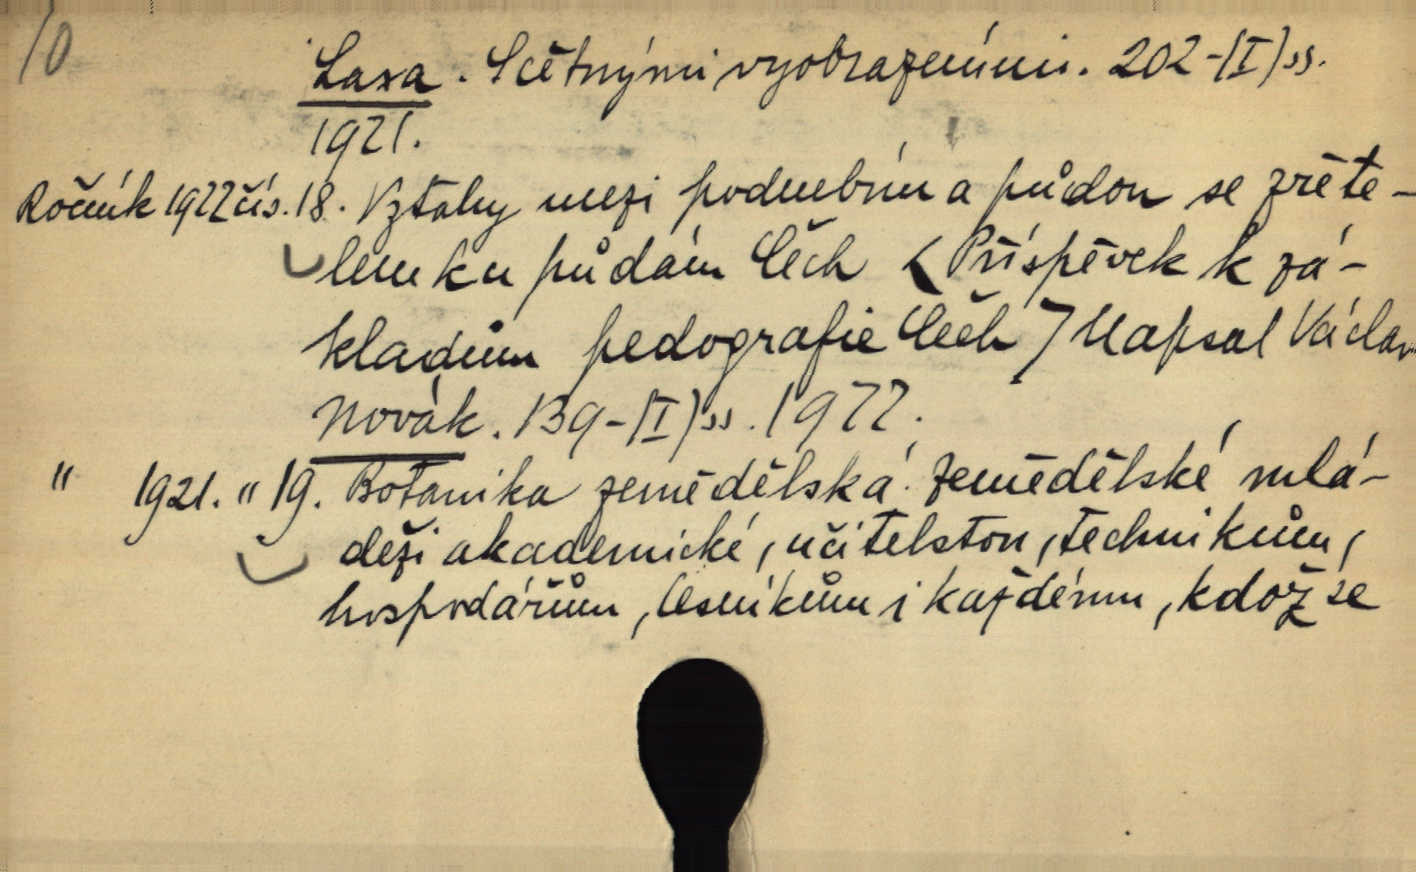 10
Laxa. S četnými vyobrazeními. 202-(I) ss.
1921.
Ročník 1922 čís. 18. Vztahy mezi podnebím a půdou se zřete-
lem ku půdám Čech (Příspěvek k zá-
kladům pedografie Čech) Napsal Václav
Novák. 139-(I) ss. 1922.
" 1921. " 19. Botanika zemědělská. Zemědělské mlá-
deži akademické, učitelstvu, technikům,
hospodářům, lesníkům i každému, kdož se